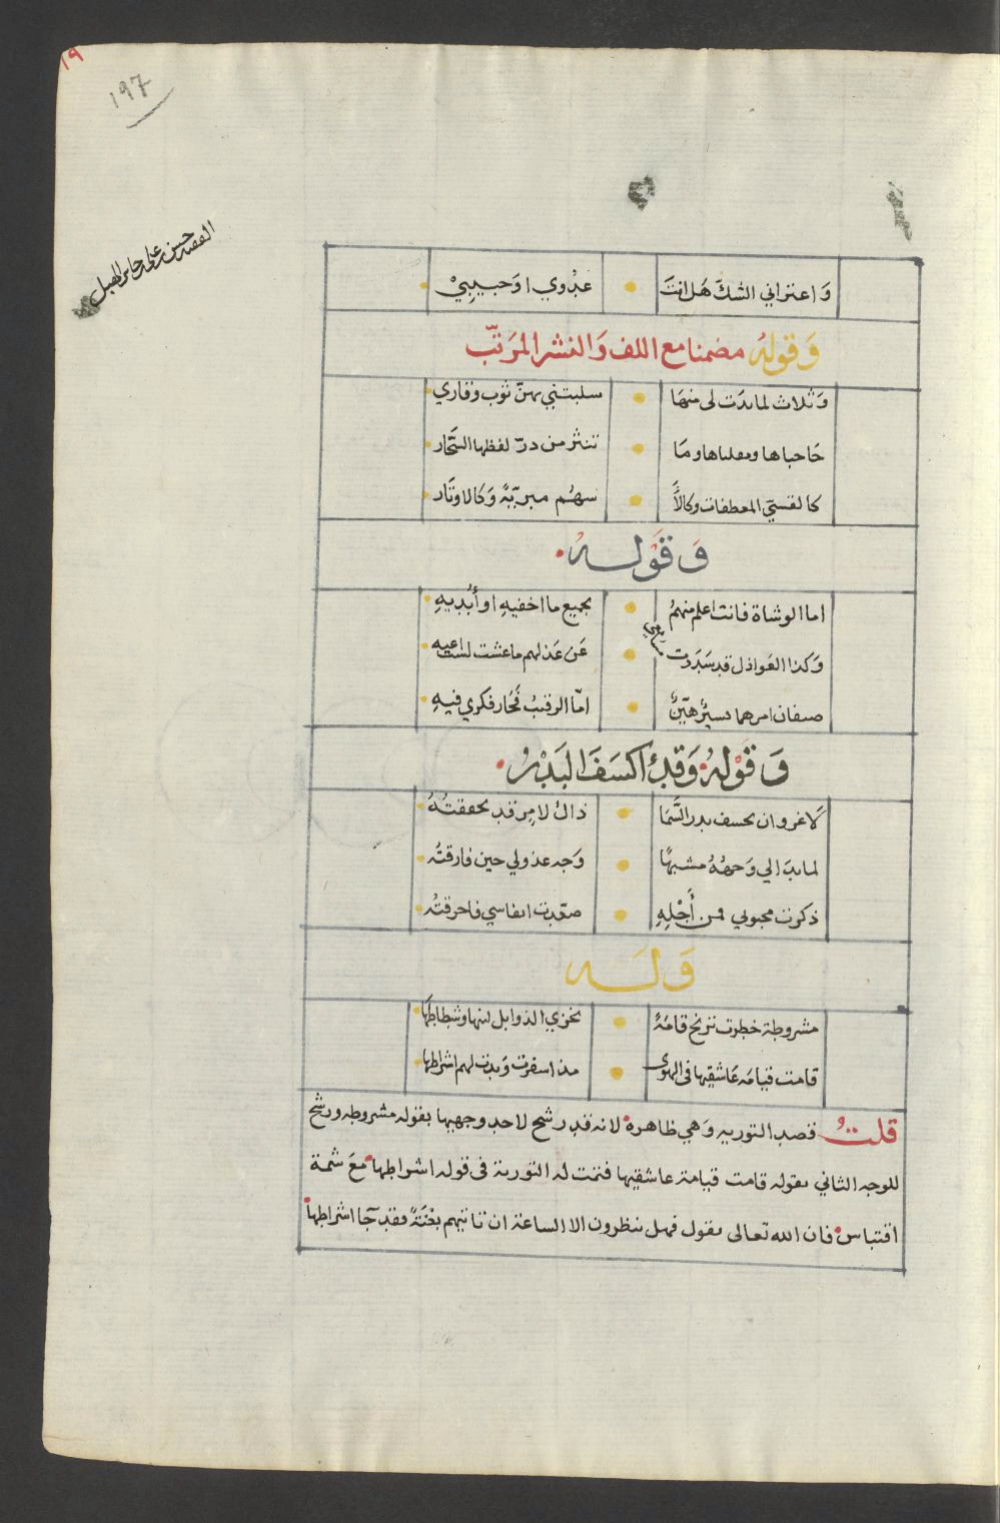 ١٩
١٩٧
الفقيه حسن علي جابر الهبل
وَاعتراني الشكّ هَل انتَ عدْوي اوَحبيبيْ
وَقولهُ مضمنا مع اللف وَالنشر المرَتبّ
وَثلاث لما بدَت لى منهَا سلبتني بهنّ ثوب وقاري
حَاجباها ومقلتاها ومَا تنثر من درّ لفظها السَّحار
كالقسيّ المعطفات وكالأ سهُم مبريّةً وَكالاوتَار
وَقَولهُ
اما الوشاة فانت اعلم منهمُ بجميع ما اخفيهِ اوأبُديهِ
وَكذا العَواذل قد سَدَدت مسامعي عَن عَذلهم ماعشت لستُ اعيهِ
صنفان امرهما يسيرٌ هيّنٌ امّا الرقيبُ فُحار فكري فيهِ
وَقوْلهُ وَقدْ اُكسَفَ البَدْرُ
لَاغروان يخسف بدر السَّمَا ذاك لامرٍ قد تحققتُهُ
لما بدَا لي وَجههُ مشبهًا وَجه عذولي حين فارقتُه
ذكرت محبوبي فمن أَجْلِهِ صعّدت انفاسي فاحرقتُه
وَلَه
مشروطة خطرت ترنح قامَةً تخزي الذوابل لينها وشطاطهَا
قامت قيامَة عَاشقيها فى الهوى مذ اسفرت وَبدت لهم اشراطها
قلتُ قصد التوريه وَهي ظاهرة لانه قد رشح لاحد وجهيها بقوله مشروطه ورشح
للوجه الثاني بقوله قامت قيامة عاشقيها فتمت له التورية فى قوله اشراطها معَ شمة
اقتباس فان الله تعالى يقول فهل ينظرون الا الساعة ان تاتيهم بغتةً فقد جَا اشراطها